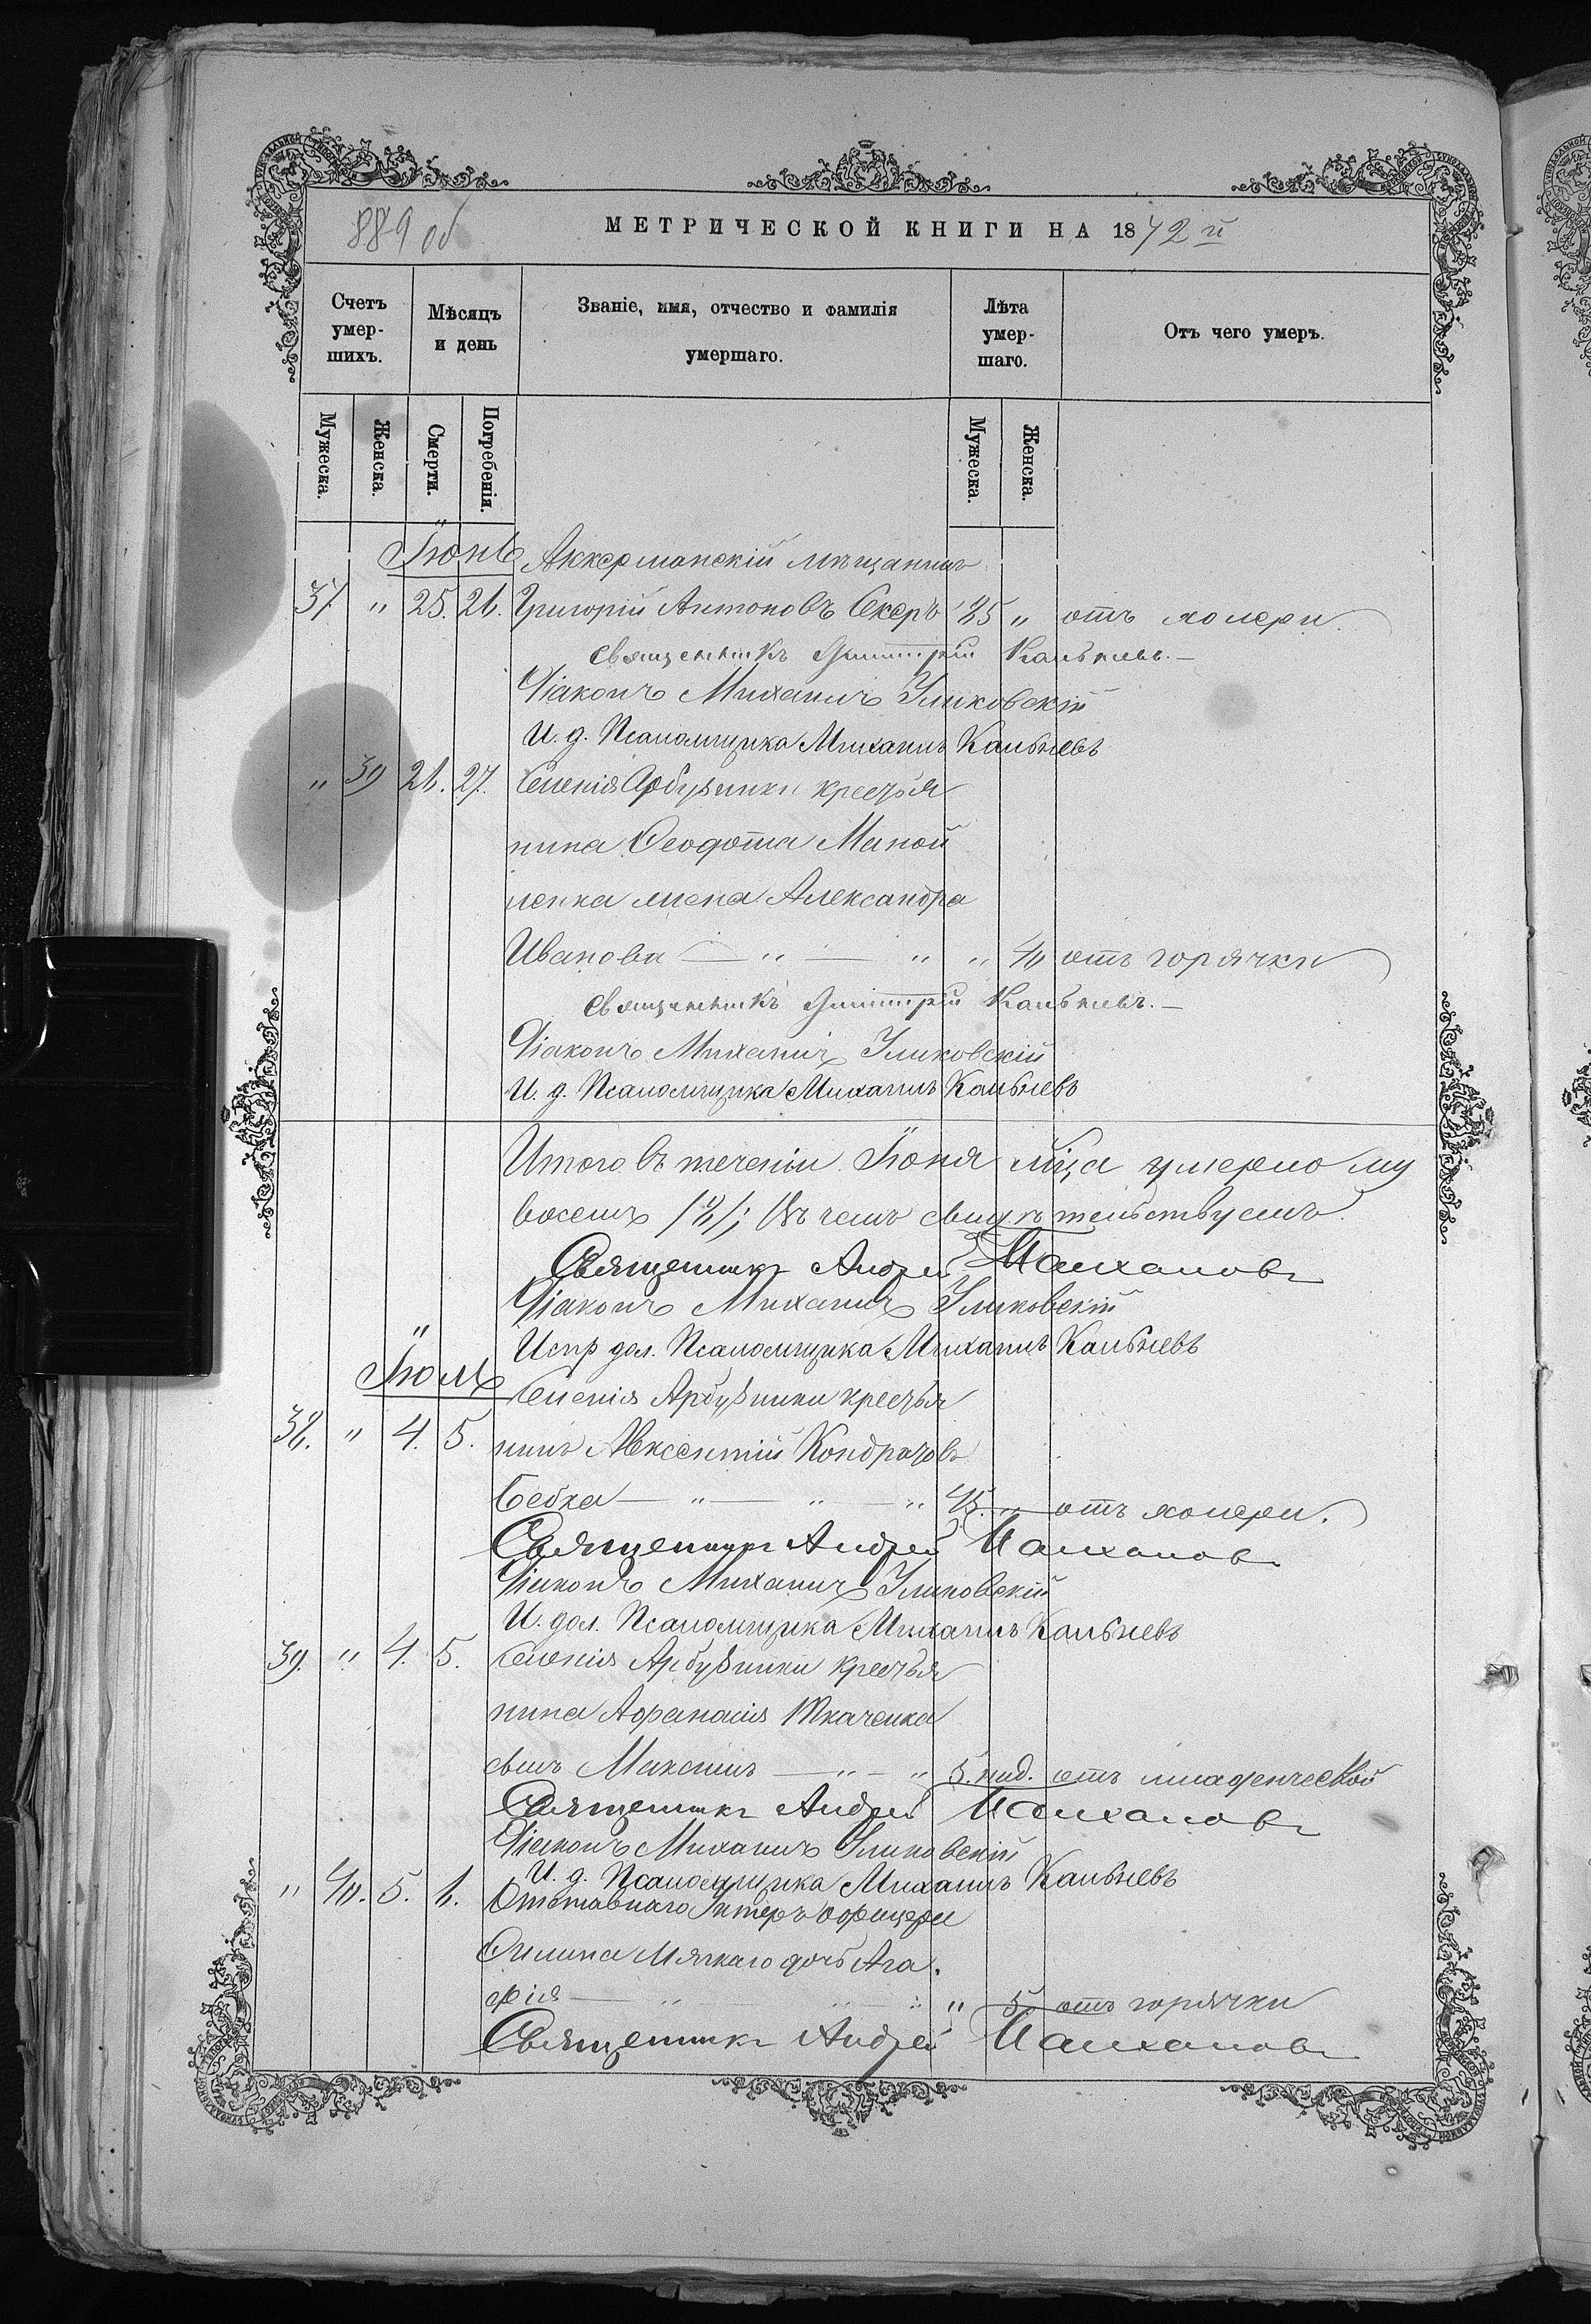 889 об
МЕТРИЧЕСКОЙ КНИГИ НА 1872 й
Счетъ умер-шихъ.
Мѣсяцъ и день
Званіе, имя, отчество и фамилія умершаго.
Лѣта умер-шаго.
Отъ чего умеръ.
Мужеска.
Женска.
Смерти.
Погребенія.
Мужеска.
Женска.
Іюнь Аккерманскій мѣщанинъ
37. " 25. 26. Григорій Антоновъ Секеръ 25 " отъ холеры.
Священникъ Димитрій Кальневъ.—
Діаконъ Михаилъ Уликовскій
И. д. Псаломщика Михаилъ Кальневъ
" 39 26. 27. Селенія Арбузинки крестья
нина Ѳеодота Маной
ленка жена Александра
Иванова — " — " " 40 отъ горячки
Священникъ Димитрій Кальневъ.—
Діаконъ Михаилъ Уликовскій
И. д. Псаломщика Михаилъ Кальневъ
Итого въ теченіи Іюня м-ца умерло
восемь /8/; Въ чемъ свидѣтельствуемъ.
Священникъ Андрей
Діаконъ Михаилъ Уликовскій
Испр дол. Псаломщика Михаилъ Кальневъ
Іюль
Селенія Арбузинки крестья
38. " 4. 5. нинъ Авксентій Кондратовъ
Бебха — " — " — " 45. " отъ холеры.
Священникъ Андрей
Діаконъ Михаилъ Уликовскій
И. дол. Псаломщика Михаилъ Кальневъ
39. " 4. 5. Селенія Арбузинки крестья
нина Афанасія Ткаченка
сынъ Максимъ — " — " 5. нид. отъ младенческой
Священникъ Андрей
Діаконъ Михаилъ Уликовскій
И. д. Псаломщика Михаилъ Кальневъ
" 40. 5. 6. Отставнаго Унтеръ офицера
Филипа Мягкаго дочь Ага.
фія — " " " 5 отъ горячки
Священникъ Андрей